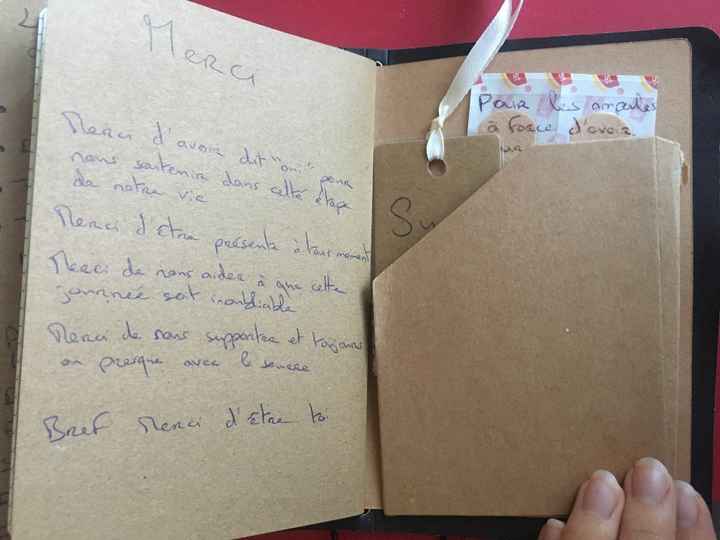 Merci
Merci d'avoir dit "oui" pour
nous soutenir dans cette étape
de notre vie
Merci d'être présente à tous moment
Merci de nous aider à que cette
journée soit inoubliable
Merci de nous supporter et toujours
ou presque avec le sourire
Bref Merci d'être toi
Pour les ampoules
à force d'avoir
Su